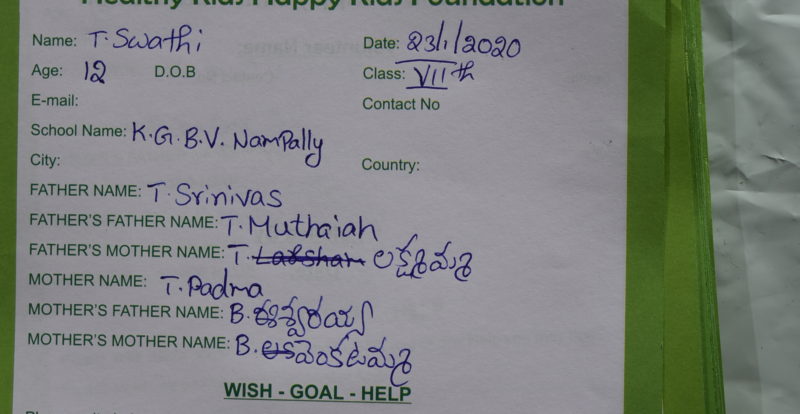 Healthy Kids Happy Kids Foundation
Name: T. Swathi Date: 23/1/2020
Age: 12 D.O.B Class: VIIth
E-mail: Contact No
School Name: K.G.B.V. Nampally
City: Country:
FATHER NAME: T. Srinivas
FATHER'S FATHER NAME: T. Muthaiah
FATHER'S MOTHER NAME: T. లక్ష్మమ్మ
MOTHER NAME: T. Padma
MOTHER'S FATHER NAME: B. ఈశ్వరయ్య
MOTHER'S MOTHER NAME: B. వెంకటమ్మ
WISH - GOAL - HELP